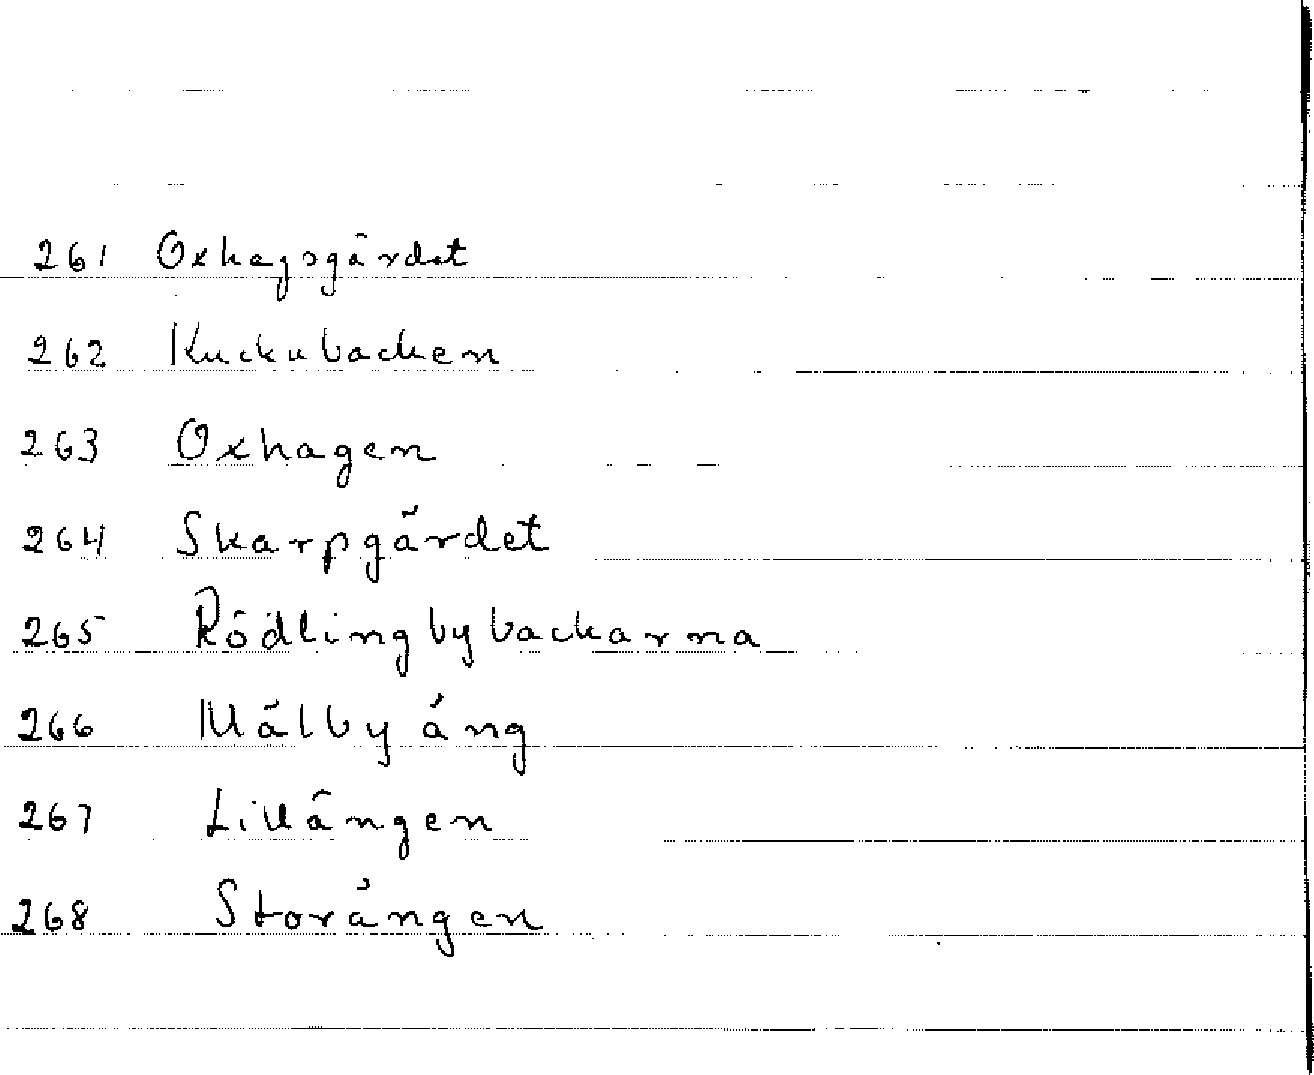 261 Oxhagsgärdet
262 Kuckubacken
263 Oxhagen
264 Skarpgärdet
265 Rödlingbybackarna
266 Målby äng
267 Lillängen
268 Storängen